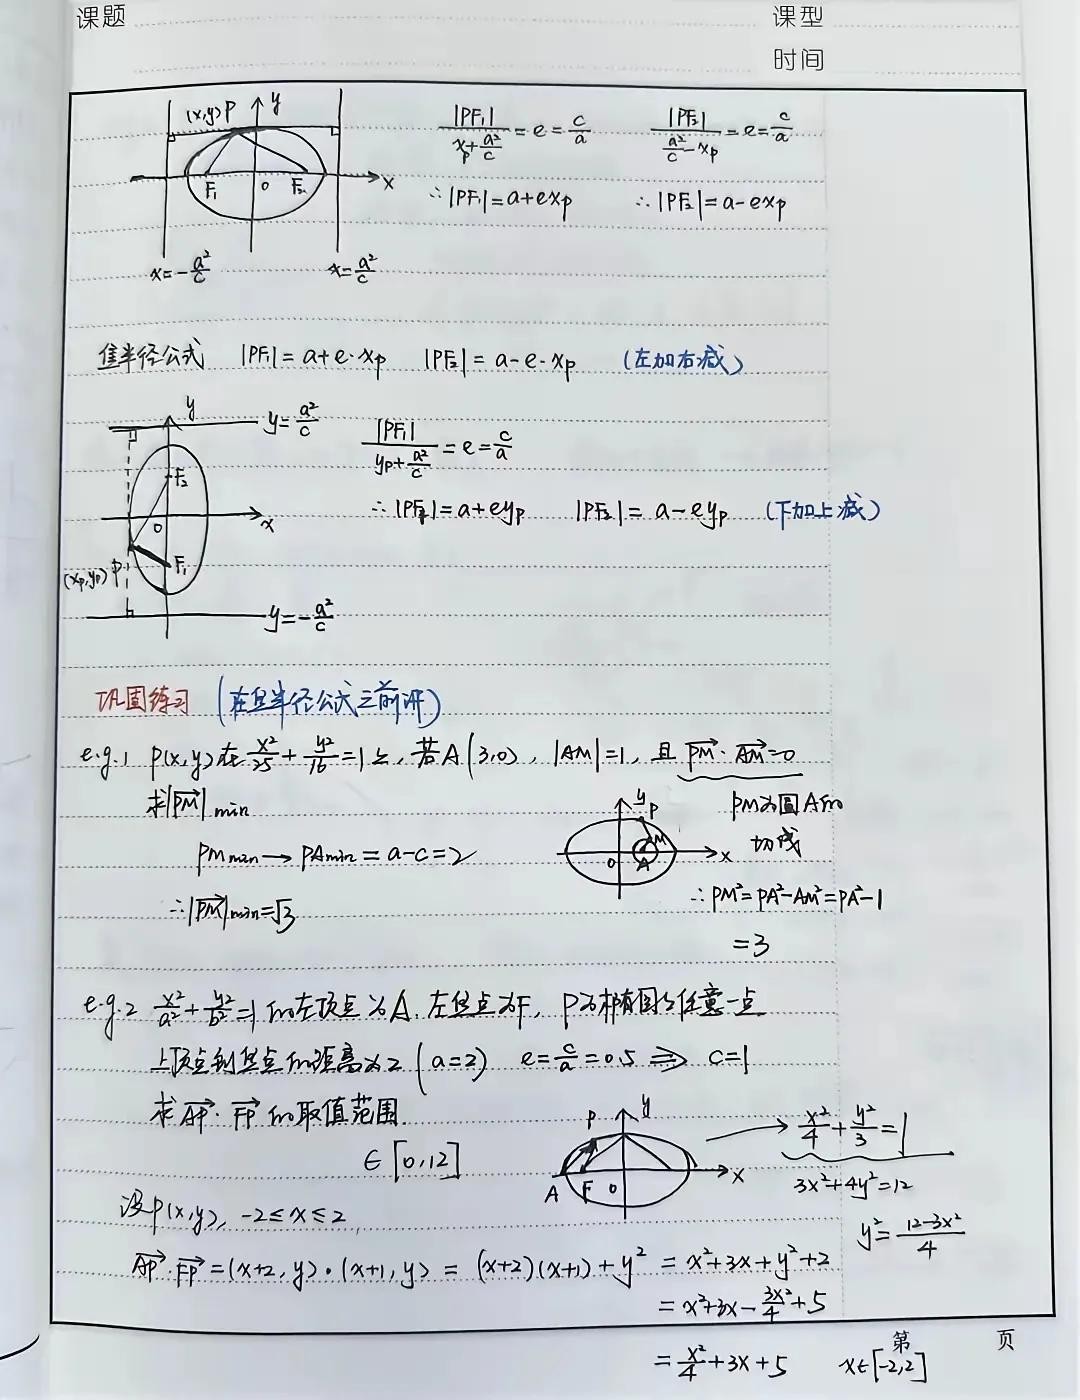 课题
课型
时间
(x,y) P
y
x
F₁
O
F₂
x=-a²/c
x=a²/c
|PF₁|/(xₚ+a²/c)=e=c/a
|PF₂|/(a²/c-xₚ)=e=c/a
∴|PF₁|=a+exₚ
∴|PF₂|=a-exₚ
焦半径公式 |PF₁|=a+e·xₚ |PF₂|=a-e·xₚ (左加右减)
y
y=a²/c
F₂
O
x
(xₚ,yₚ) P
F₁
y=-a²/c
|PF₁|/(yₚ+a²/c)=e=c/a
∴|PF₁|=a+eyₚ |PF₂|=a-eyₚ (下加上减)
巩固练习 (在焦半径公式之前讲)
e.g.1 P(x,y)在x²/25+y²/16=1上,若A(3,0),|AM|=1,且PM·AM=0
求|PM|min
PMmin→PAmin=a-c=2
∴|PM|min=√3
y
P
M
O
A
x
PM为圆A的
切线
∴PM²=PA²-AM²=PA²-1
=3
e.g.2 x²/a²+y²/b²=1的左顶点为A,左焦点为F,P为椭圆上任意一点
上顶点到焦点的距离为2(a=2) e=c/a=0.5⇒c=1
求AP·FP的取值范围.
∈[0,12]
P
y
A
F
O
x
x²/4+y²/3=1
3x²+4y²=12
y²=(12-3x²)/4
设P(x,y),-2≤x≤2
AP·FP=(x+2,y)·(x+1,y)=(x+2)(x+1)+y²=x²+3x+y²+2
=x²+3x-3x²/4+5
=x²/4+3x+5 x∈[-2,2]
第 页